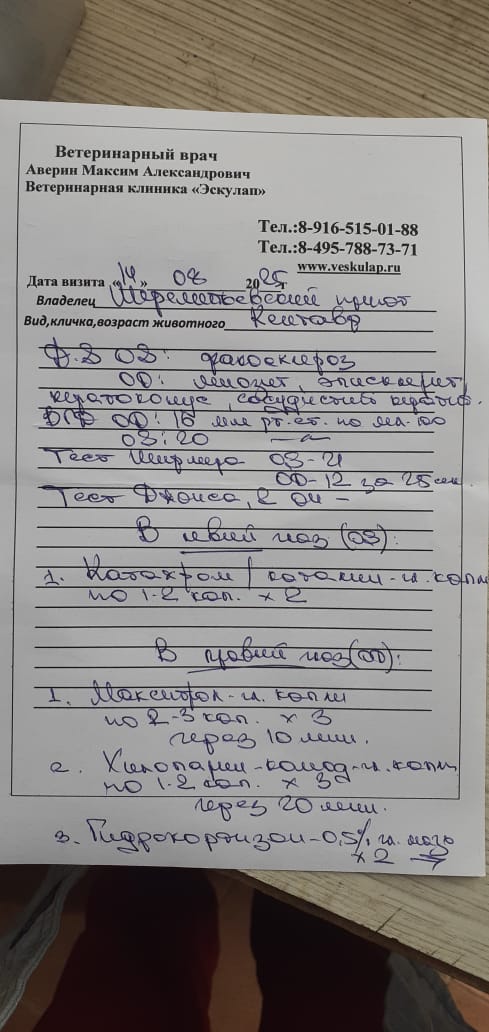 Ветеринарный врач
Аверин Максим Александрович
Ветеринарная клиника «Эскулап»
Тел.:8-916-515-01-88
Тел.:8-495-788-73-71
www.veskulap.ru
Дата визита «14» 08 2025г
Владелец Шереметьевский приют
Вид,кличка,возраст животного Кентавр
Д.S OS: факосклероз
OD: эписклерит,
кератоконус, сосудистый кератит.
ВГД OD: 16 мм рт.ст. по
OS: 20 —"—
Тест Ширмера OS-21
OD-12 за 25 сек.
Тест Джонса, 2 OU –
В левый глаз (OS):
1. Катахром / каталин-гл. капли
по 1-2 кап. x 2
В правый глаз (OD):
1. Макситрол-гл. капли
по 2-3 кап. x 3
через 10 мин.
2. Хилопарин-комод-гл. капли
по 1-2 кап. x 3
через 20 мин.
3. Гидрокортизон-0,5% гл. мазь
x 2 →